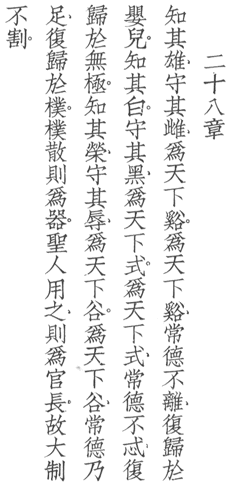 二十八章
知其雄、守其雌、爲天下谿。爲天下谿、常德不離、復歸於
嬰兒。知其白、守其黑、爲天下式。爲天下式、常德不忒、復
歸於無極。知其榮、守其辱、爲天下谷。爲天下谷、常德乃
足、復歸於樸。樸散則爲器。聖人用之、則爲官長。故大制
不割。